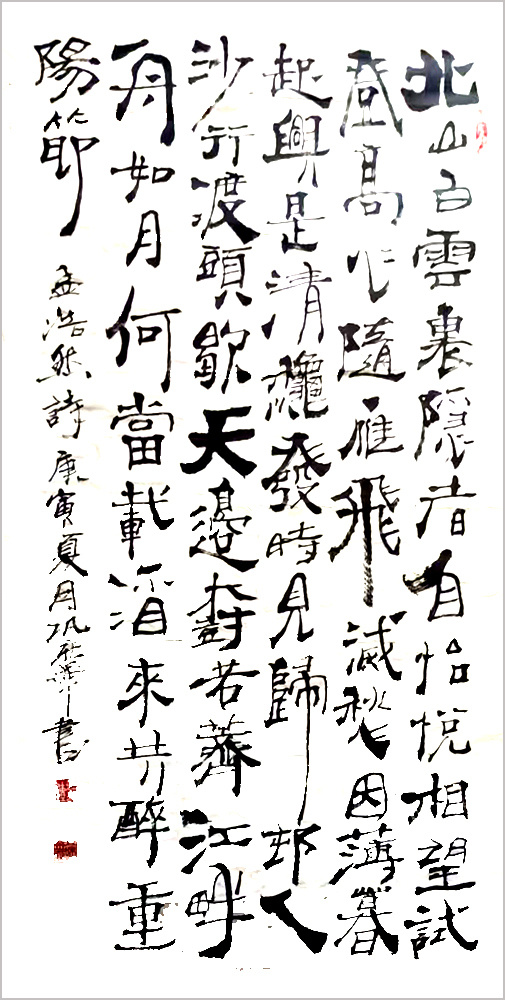 北山白雲裏隱者自怡悅相望試
登高心隨雁飛滅愁因薄暮
起興是清龝發時見歸邨人
沙行渡頭歇天邊樹若薺江畔
舟如月何當載酒來共醉重
陽節 孟浩然詩 庚寅夏月 書